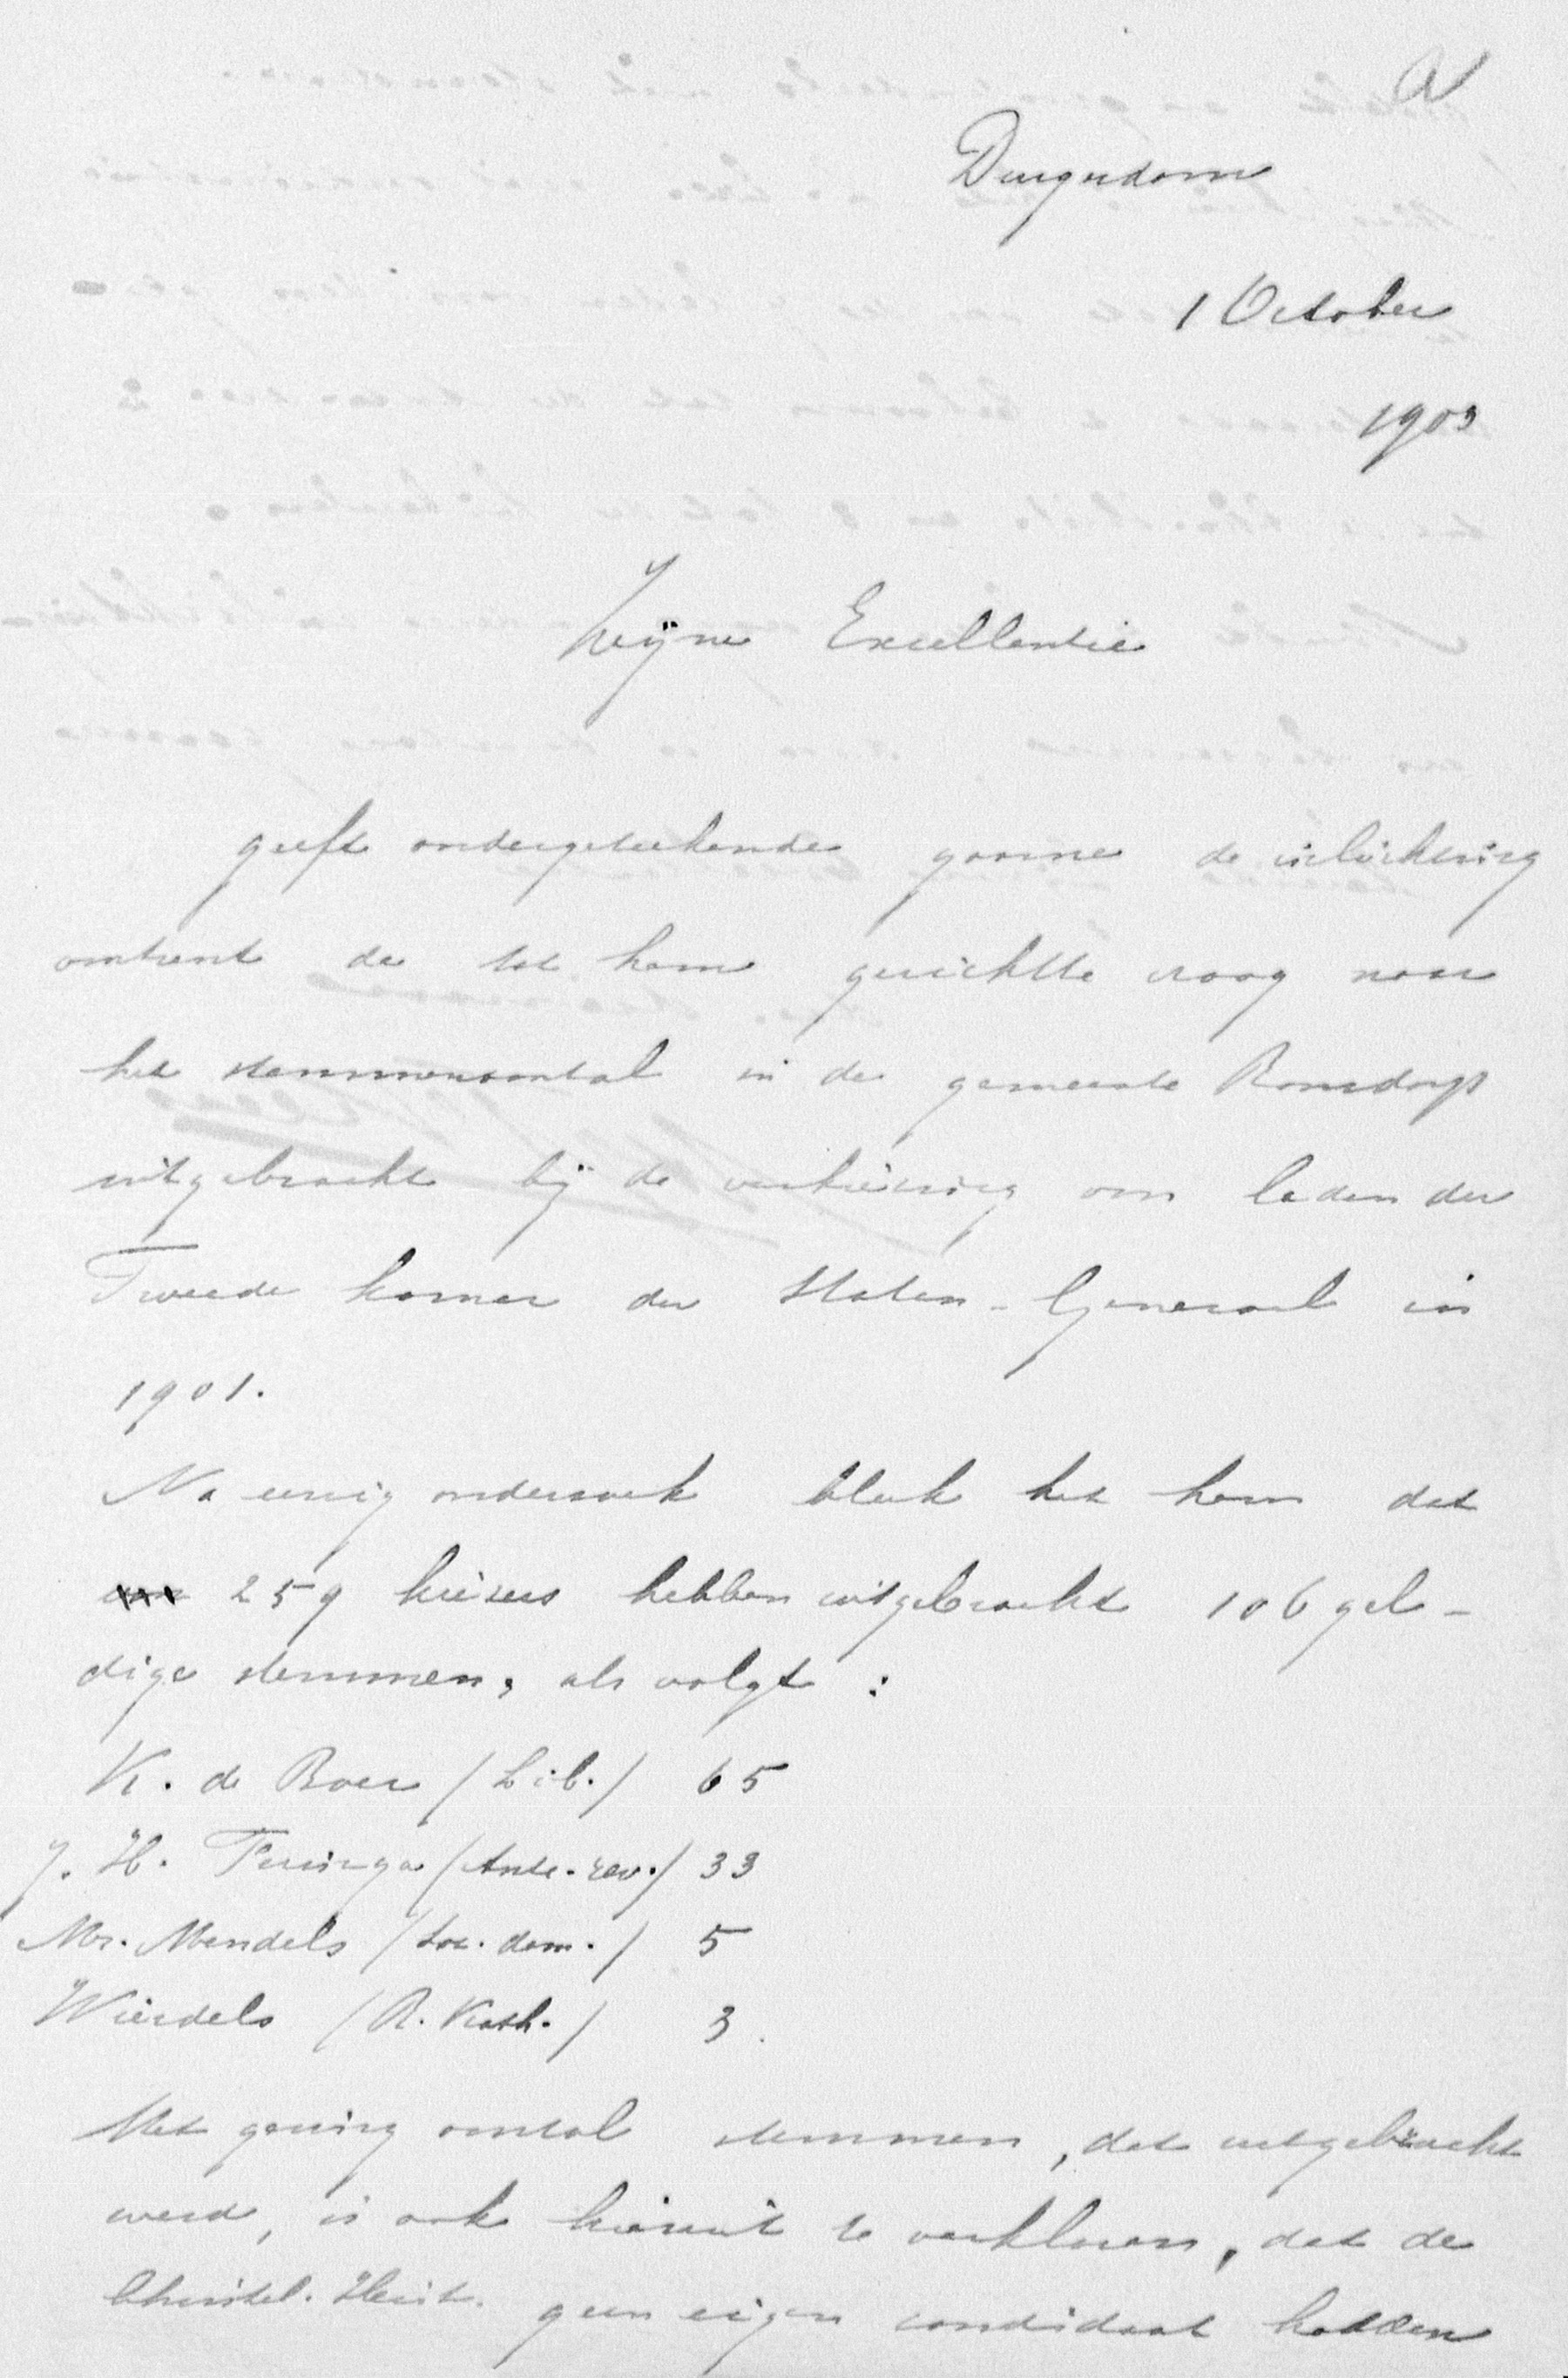 Durgerdam
1 October
1903
Zijne Excellentie
geeft ondergeteekende gaarne de inlichting
omtrent de tot hem gerichtte vraag naar
het stemmenaantal in de gemeente Ransdorp
uitgebracht bij de verkiezing van leden der
Tweede kamer der Staten-Generaal in
1901.
Na eenig onderzoek bleek het hem dat
259 kiezers hebben uitgebracht 106 gel-
dige stemmen, als volgt :
K. de Boer / Lib. / 65
J. H. Feringa / Anti-rev. / 33
Mr. Mendels / Soc. dem. / 5
Wierdels / R. Kath. / 3.
Het gering aantal stemmen, dat uitgebracht
werd, is ook hieruit te verklaren, dat de
Christel. Hist. geen eigen candidaat hadden